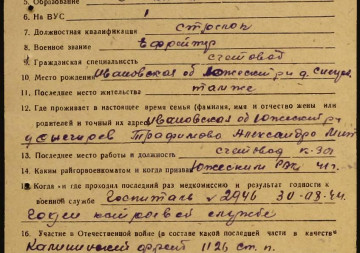 5. Образование
6. На ВУС
7. Должностная квалификация стрелок
8. Военное звание Ефрейтор
9. Гражданская специальность счетовод
10. Место рождения Ивановская об Южеский р д.
11. Последнее место жительства там же
12. Где проживает в настоящее время семья (фамилия, имя и отчество жены или
родителей и точный их адрес) Ивановская об Южеский р
д Трафимова Александра
13. Последнее место работы и должность счетовод к-з
14. Каким райгорвоенкоматом и когда призван Южеским РВК 41 г.
15. Когда и где проходил последний раз медкомиссию и результат годности к
военной службе Госпиталь № 2946 30-08-44
Годен к строевой службе
16. Участие в Отечественной войне (в составе какой последней части в качестве
Калининский фронт 1126 с.п.